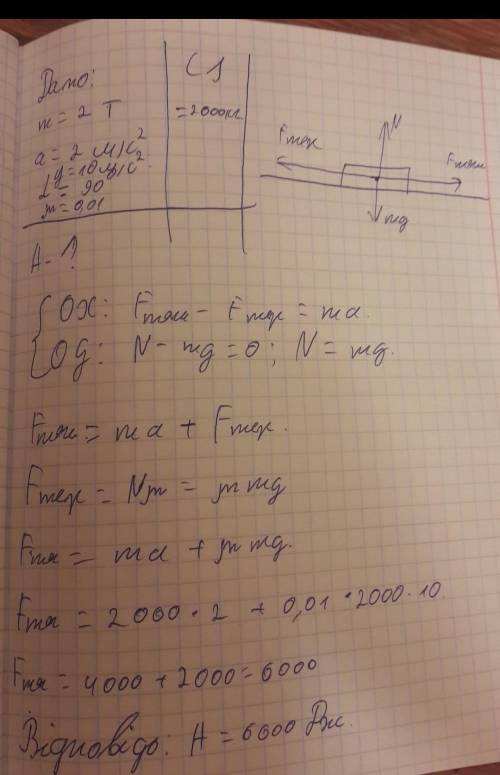 Дано:
СІ
m = 2 Т
= 2000кг
a = 2 м/с²
g = 10 м/с².
L = 90
m = 0,01
A - ?
N
Fтер
Fтяги
mg
OX: Fтяги - Fтер = ma.
Oy: N - mg = 0; N = mg.
Fтяги = ma + Fтер.
Fтер = Nm = m mg
Fтя = ma + m mg.
Fтя = 2000 · 2 + 0,01 · 2000 · 10
Fтя = 4000 + 2000 = 6000
Відповідь: A = 6000 Дж.